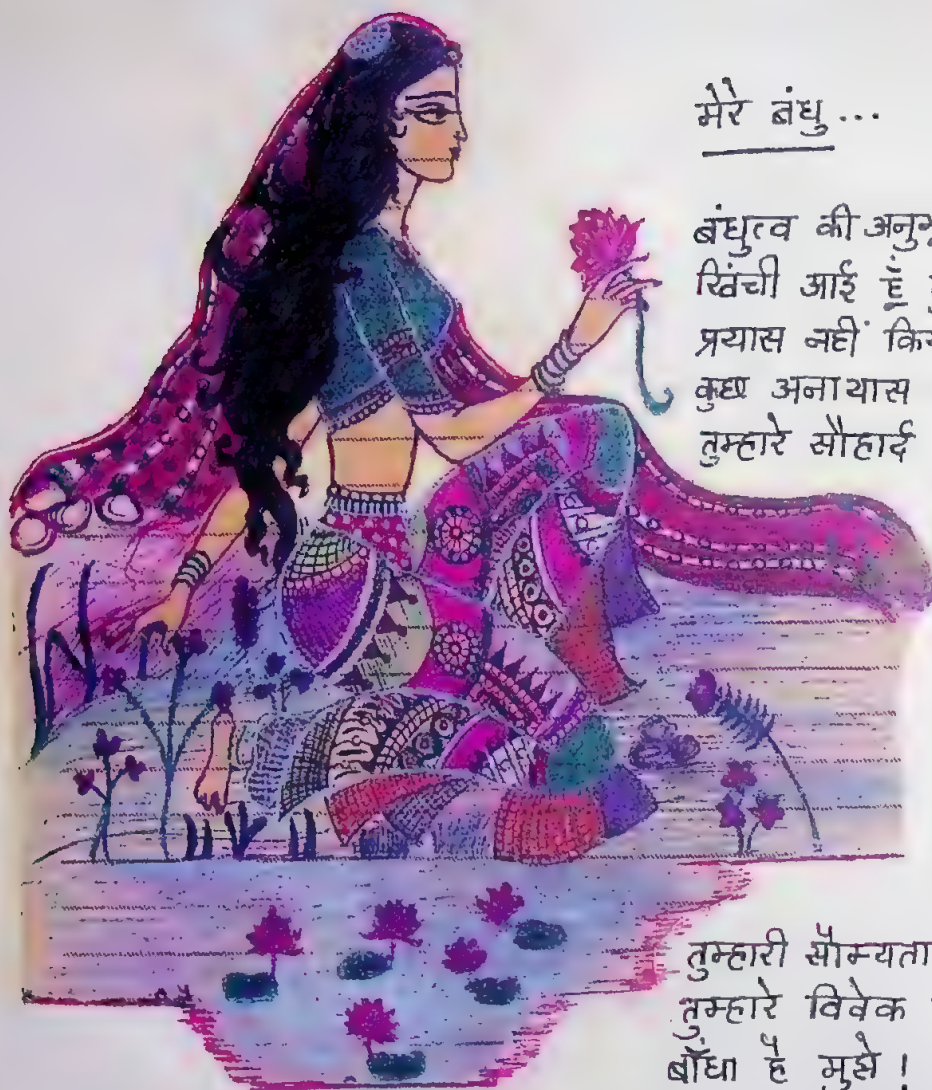 मेरे बंधु...
बंधुत्व की
खिंची आई हूँ
प्रयास नहीं
कुछ अनायास
तुम्हारे सौहार्द
तुम्हारी सौम्यता
तुम्हारे विवेक
बाँधा है मुझे !